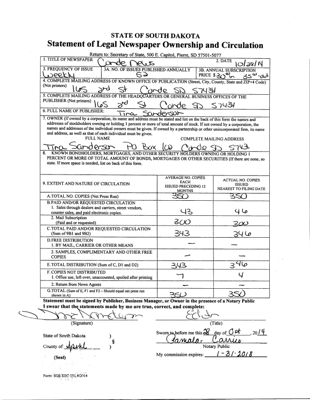 STATE OF SOUTH DAKOTA
Statement of Legal Newspaper Ownership and Circulation
Return to: Secretary of State, 500 E. Capitol, Pierre, SD 57501-5077
1. TITLE OF NEWSPAPER Conde News
2. DATE
3. FREQUENCY OF ISSUE Weekly
3A. NO. OF ISSUES PUBLISHED ANNUALLY 52
3B. ANNUAL SUBSCRIPTION PRICE
4. COMPLETE MAILING ADDRESS OF KNOWN OFFICE OF PUBLICATION (Street, City, County, State and ZIP+4 Code)
(Not printers) 165 2nd St Conde SD 57434
5. COMPLETE MAILING ADDRESS OF THE HEADQUARTERS OR GENERAL BUSINESS OFFICES OF THE
PUBLISHER (Not printer) 165 2nd St Conde SD 57434
6. FULL NAME OF PUBLISHER: Tina Sanderson
7. OWNER (If owned by a corporation, its name and address must be stated and list on the back of this form the names and
addresses of stockholders owning or holding 1 percent or more of total amount of stock. If not owned by a corporation, the
names and addresses of the individual owners must be given. If owned by a partnership or other unincorporated firm, its name
and address, as well as that of each individual must be given.
FULL NAME COMPLETE MAILING ADDRESS
Tina Sanderson PO Box Conde SD
8. KNOWN BONDHOLDERS, MORTGAGES, AND OTHER SECURITY HOLDERS OWNING OR HOLDING 1
PERCENT OR MORE OF TOTAL AMOUNT OF BONDS, MORTGAGES OR OTHER SECURITIES (If there are none, so
state. If more space is needed, list on back of this form.
9. EXTENT AND NATURE OF CIRCULATION
AVERAGE NO. COPIES EACH ISSUED PRECEDING 12 MONTHS
ACTUAL NO. COPIES ISSUED NEAREST TO FILING DATE
A. TOTAL NO. COPIES (Net Press Run) 350 350
B. PAID AND/OR REQUESTED CIRCULATION
1. Sales through dealers and carriers, street vendors,
counter sales, and paid electronic copies. 43 46
2. Mail Subscription
(Paid and or requested) 300 300
C. TOTAL PAID AND/OR REQUESTED CIRCULATION
(Sum of 9B1 and 9B2) 343 346
D. FREE DISTRIBUTION
1. BY MAIL, CARRIER OR OTHER MEANS
2. SAMPLES, COMPLIMENTARY AND OTHER FREE
COPIES
E. TOTAL DISTRIBUTION (Sum of C, D1 and D2) 343 346
F. COPIES NOT DISTRIBUTED
1. Office use, left over, unaccounted, spoiled after printing 7 4
2. Return from News Agents
G. TOTAL (Sum of E, F1 and F2 - Should equal net press run
shown in A) 350 350
Statement must be signed by Publisher, Business Manager, or Owner in the presence of a Notary Public
I swear that the statements made by me are true, correct, and complete:
Editor
(Signature) (Title)
State of South Dakota )
County of ) §
(Seal)
Sworn to before me this 28 day of Oct 2014
Notary Public
My commission expires: 1-31-2018